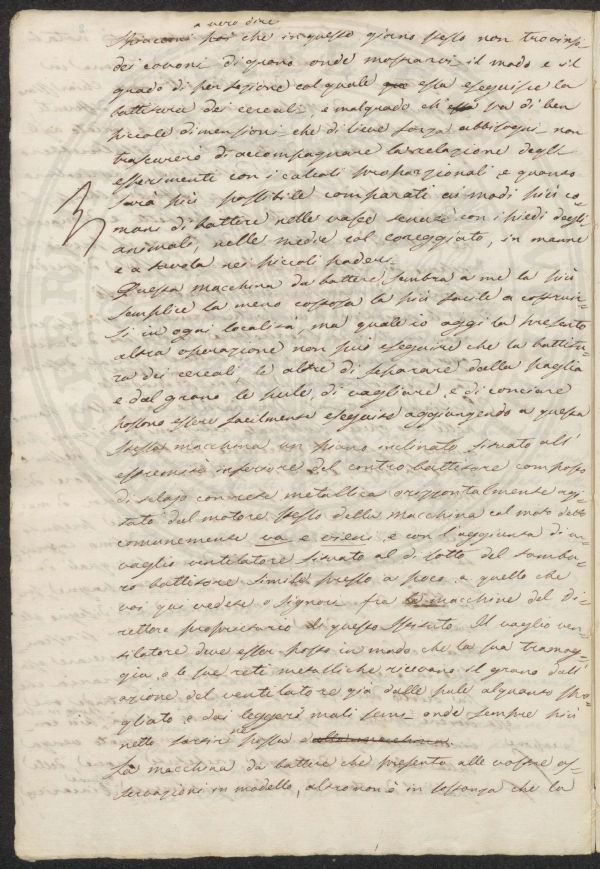 a vero dire
Spiacemi che in questo giorno stesso non trovinsi
dei covoni di grano onde mostrarvi il modo e il
grado di perfezione col quale essa eseguisce la
battitura dei cereali e malgrado ch'essa sia di ben
piccole dimensioni che di lieve forza abbisogni non
trascurerò di accompagnare la relazione degli
esperimenti con i calcoli proporzionali e quanto
sarà più possibile comparati ai modi più co-
muni di battere nelle vaste tenute con i piedi degli
animali, nelle medie col coreggiato, in manne
e a tavola nei piccoli poderi.
Questa macchina da battere sembra a me la più
semplice la meno costosa la più facile a costruir-
si in ogni località, ma quale io oggi la presento
altra operazione non può eseguire che la battitu-
ra dei cereali, le altre di separare dalla paglia
e dal grano le pule, di vagliare, e di conciare
possono essere facilmente eseguite aggiungendo a questa
stessa macchina un piano inclinato situato all'
estremità inferiore del contro battitore composto
di telajo con rete metallica orizzontalmente agi-
tato dal motore stesso della macchina col moto detto
comunemente va e vieni, e con l'aggiunta di un
vaglio ventilatore situato al di sotto del tambu-
ro battitore simile presso a poco a quello che
voi qui vedete o Signori fra le macchine del di-
rettore proprietario di questo Istituto. Il vaglio ven-
tilatore deve esser posto in modo che la sua tramog-
gia, e le sue reti metalliche ricevano il grano dall'
azione del ventilatore già dalle pule alquanto spo-
gliato e dai leggeri mali semi onde sempre più
netto sortir ne possa
La macchina da battere che presento alle vostre os-
servazioni in modello, altro non è in sostanza che la